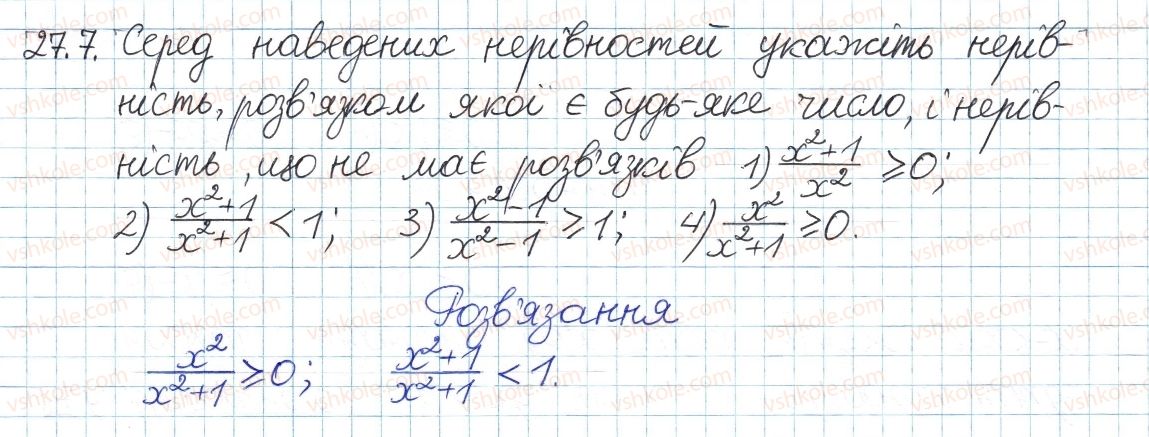 27.7. Серед наведених нерівностей укажіть нерів-
ність, розв'язком якої є будь-яке число, і нерів-
ність, що не має розв'язків 1) \frac{x^2+1}{x^2} ≥ 0;
2) \frac{x^2+1}{x^2+1} < 1; 3) \frac{x^2-1}{x^2-1} ≥ 1; 4) \frac{x^2}{x^2+1} ≥ 0.
Розв'язання
\frac{x^2}{x^2+1} ≥ 0; \frac{x^2+1}{x^2+1} < 1.